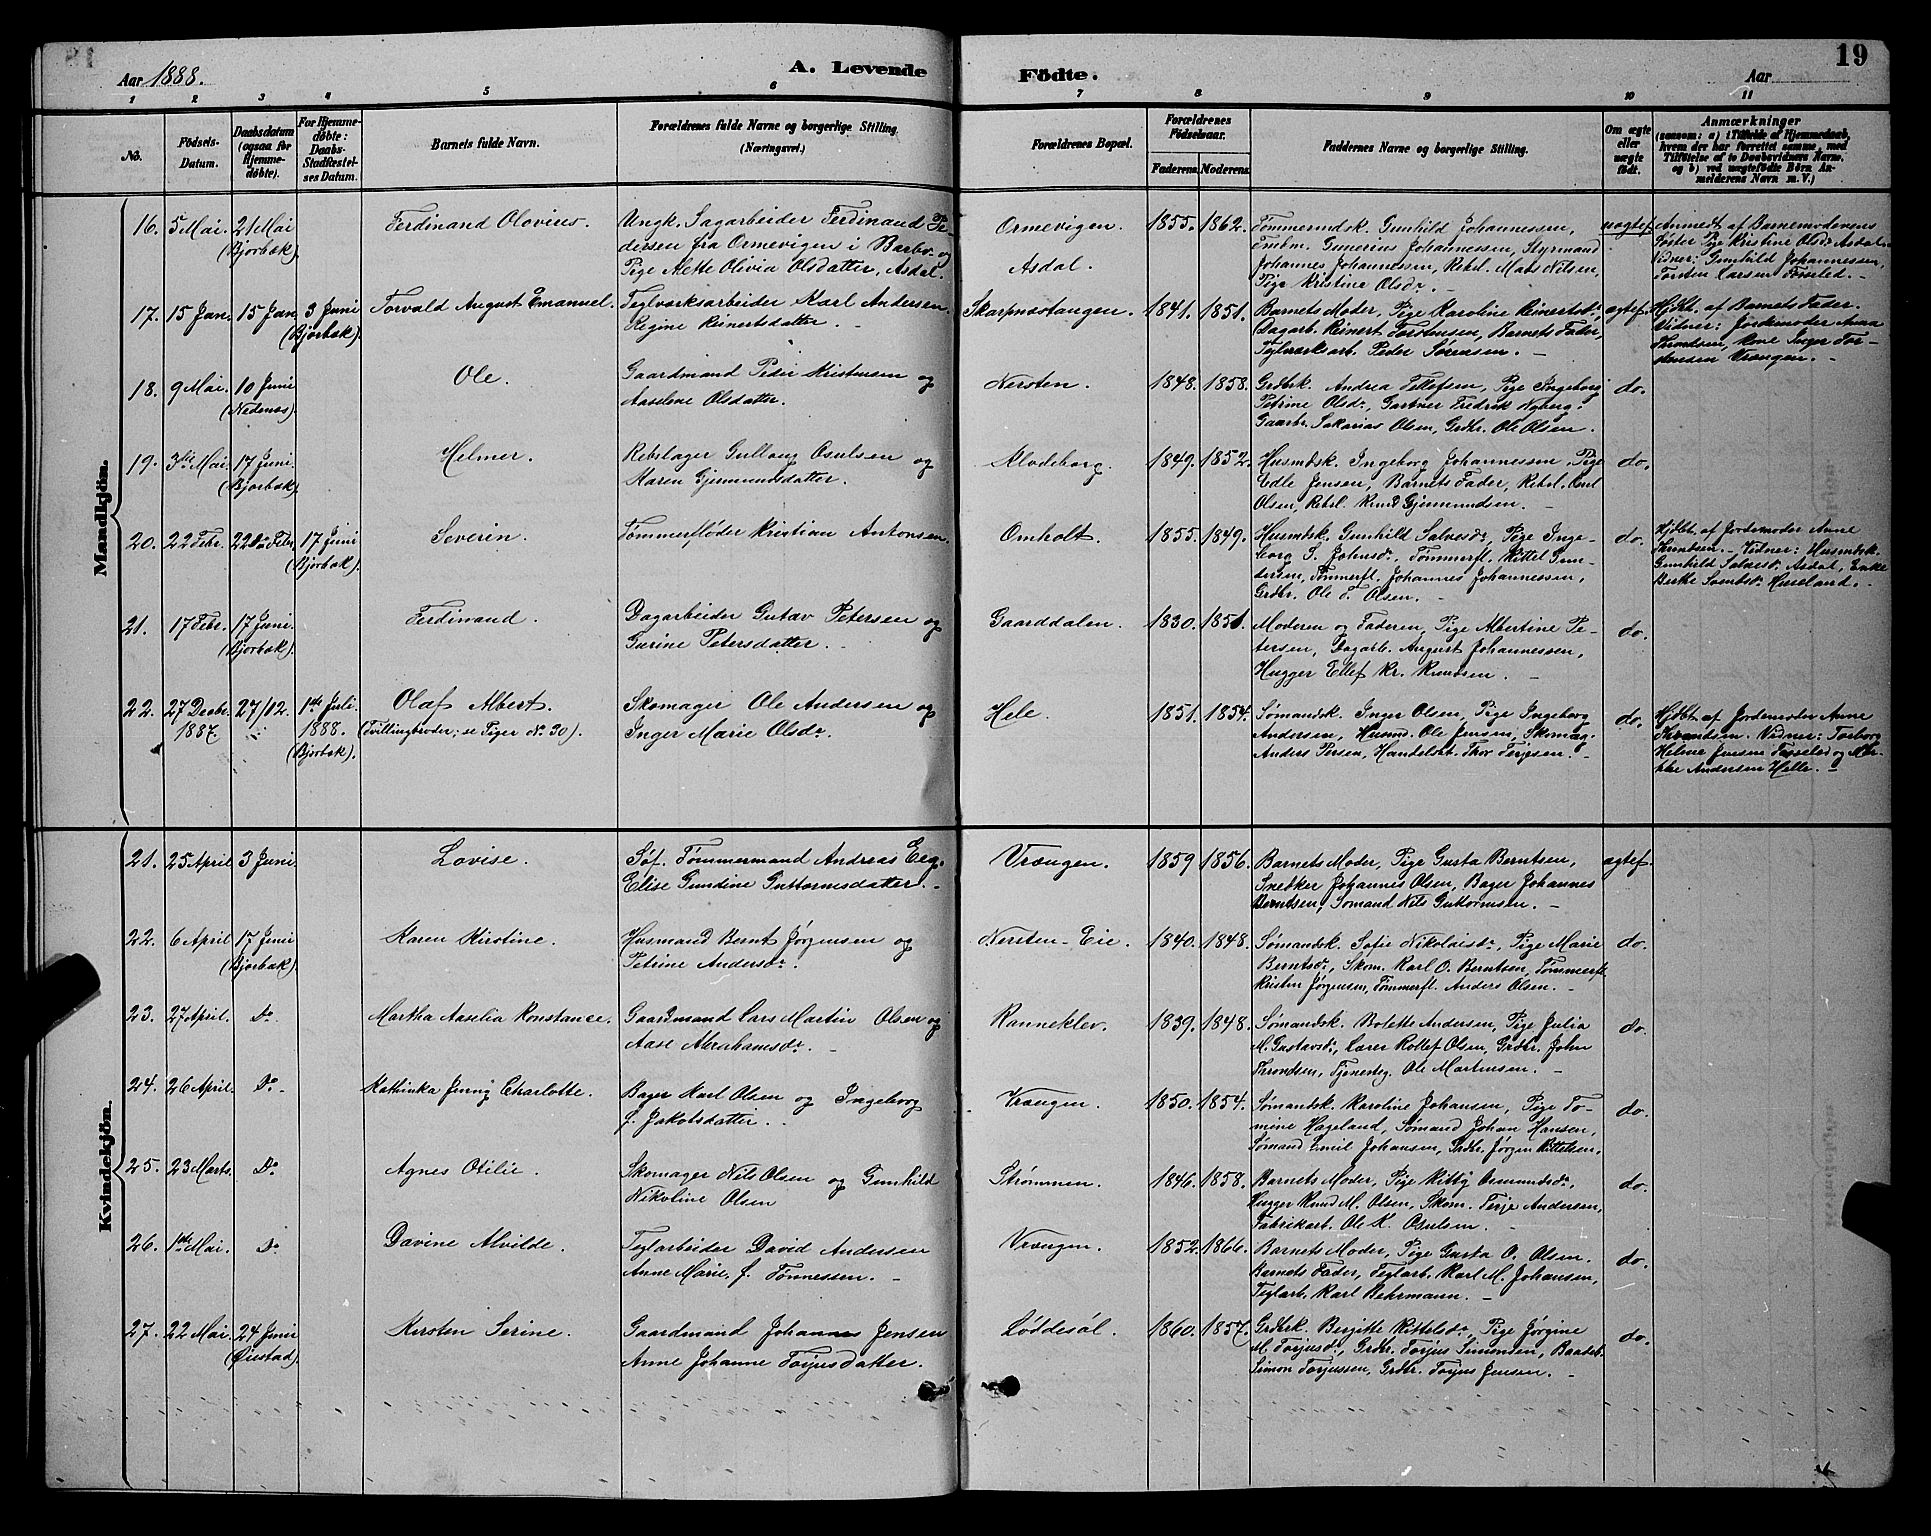 Aar 1888.
A. Levende
Födte.
Aar
19
1 2 3 4 5 6 7 8 9 10 11
No.
Födsels-
Datum.
Daabsdatum
(ogsaa for
Hjemme-
döbte).
For Hjemme-
döbte:
Daabs-
Stadfæstel-
ses Datum.
Barnets fulde Navn.
Forældrenes fulde Navne og borgerlige Stilling
(Næringsvei.)
Forældrenes Bopæl.
Forældrenes
Födselsaar.
Faderens. Moderens.
Faddernes Navne og borgerlige Stilling.
Om ægte
eller
uægte
födt.
Anmærkninger
(saasom: a) i Tilfælde af Hjemmedaab,
hvem der har forrettet samme, med
Tilföielse af to Daabsvidners Navne,
og b) ved uægtefödte Börn An-
melderens Navn m. V.)
Mandkjön.
16. 5 Mai. 21 Mai
(Bjorbæk).
Ferdinand Olovius.
Ungk. Sagarbeider Ferdinand Pe-
dersen fra Ormevigen i Barbo og
Pige Alette Olivia Olsdatter, Asdal.
Ormevigen.
Asdal.
1855. 1862.
Tømmermdsk. Gunhild Johannessen,
Tmbm. Gunerius Johannessen, Styrmand
Johannes Johannessen, Rebsl. Mats Nilsen,
Pige Kristine Olsdr. -
uægtef.
Anmeldt af Barnemoderens
Søster Pige Kristine Olsdr Asdal
Vidner: Gunhild Johannessen,
Torsten Larsen
17. 15 Jan. 15 Jan. 3 Juni
(Bjorbæk).
Torvald August Emanuel.
Teglværksarbeider Karl Andersen
Regine Reinertsdatter. -
Skarpnæstangen.
1841. 1851.
Barnets Moder, Pige Karoline Reinertsdr,
Dagarb. Reinert Torstensen, Barnets Fader,
Teglværksarb. Peder Sørensen. -
ægtef.
Hjdbt. af Barnets Fader.
Vidner: Jordemoder Anna
Throndsen, Kone Inger Tor-
stensen Vrængen. -
18. 9 Mai. 10 Juni
(Nedenæs).
Ole.
Gaardmand Peder Kristensen og
Aaselene Olsdatter.
Nersten.
1848. 1858.
Grdbrk. Andrea Tellefsen, Pige Ingeborg
Petrine Olsdr, Gartner Fredrik Nyberg,
Gaarbr. Sakarias Olsen, Grdbr. Ole Olsen.
do.
19. 3die Mai 17 Juni
(Bjorbæk).
Helmer.
Rebslager Gullaug Osulsen og
Karen Gjermundsdatter.
Klodeborg.
1849. 1852.
Husmdsk. Ingeborg Johannessen, Pige
Edle Jensen, Barnets Fader, Rebsl. Karl
Olsen, Rebsl. Knud Gjermundsen.
do.
20. 22 Febr. 22de Febr 17 Juni
(Bjorbæk).
Severin.
Tømmerfløder Kristian Antonsen.
Omholt.
1855. 1849.
Husmdsk. Gunhild Salvesdr, Pige Inge-
borg S. Johnsdr, Tømmerfl. Kittel Gun-
dersen, Tømmerfl. Johannes Johannessen,
Grdbr. Ole T. Olsen. -
do.
Hjdbt. af Jordemoder Anne
Throndsen. - Vidner: Husmdsk.
Gunhild Salvesdr Asdal, Enke
Berthe Huseland. -
21. 17 Febr. 17 Juni.
(Bjorbæk).
Ferdinand.
Dagarbeider Gustav Petersen og
Gurine Petersdatter. -
Gaarddalen.
1830. 1851.
Moderen og Faderen, Pige Albertine Pe-
tersen, Dagarb. August Johannessen,
Hugger Ellef Kr. Knudsen. -
do.
22. 27 Decbr. 27/12. 1ste Juli
1887. 1888.
(Bjorbæk).
Olaf Albert.
(Tvillingbroder; se Piger No. 30).
Skomager Ole Andersen og
Inger Marie Olsdr.
Hele.
1851. 1854.
Sømandsk. Inger Olsen, Pige Ingeborg
Andersen, Husmd. Ole Jensen, Skomag.
Anders Persen, Handelsb. Thor Terjesen. -
do.
Hjdbt. af Jordemoder Anne
Throndsen. Vidner: Torborg
Helene Jensen og Mar-
the Andersen Helle. -
Kvindekjön.
21. 25 April 3 Juni
Lovise.
Søf. Tømmermand Andreas Eeg.
Elise Gundine Guttormsdatter. -
Vrængen.
1859 1856.
Barnets Moder, Pige Gusta Berntsen,
Snedker Johannes Olsen, Bager Johannes
Berntsen, Sømand Nils Guttormsen. -
ægtef.
22. 6 April 17 Juni
(Bjorbæk).
Karen Kirstine.
Husmand Bernt Jørgensen og
Petrine Andersdr.
Nersten-Eie.
1840. 1848.
Sømandsk. Sofie Nikolaisdr, Pige Marie
Berntsdr, Skom. Karl O. Berntsen, Tømmerfl.
Kristen Jørgensen, Tømmerfl. Anders Olsen. -
do.
23. 27 April. Do.
Martha Aaselia Konstance.
Gaardmand Lars Martin Olsen og
Aase Abrahamsdr. -
Ranneklev.
1839. 1848.
Sømandsk. Bolette Andersen, Pige Julia
M. Gustavsdr, Lærer Rollef Olsen, Grdbr. John
Throndsen, Tjenesteg. Ole Martinsen. -
do.
24. 26 April. Do. -
Kathinka Jenny Charlotte.
Bager Karl Olsen og Ingeborg
f. Jakobsdatter. -
Vrængen.
1850. 1854.
Sømandsk. Karoline Johansen, Pige To-
mine Hageland, Sømand Johan Hansen,
Sømand Emil Johansen, Grdbr. Jørgen Kittelsen.
do.
25. 23 Marts. Do
Agnes Otilie.
Skomager Nils Olsen og Gunhild
Nikoline Olsen
Strømmen.
1846. 1858.
Barnets Moder, Pige Kitty Osmundsdr,
Hugger Knud M. Olsen, Skom. Terje Andersen,
Fabrikarb. Ole K. Osulsen. -
do.
26. 1ste Mai. Do
Davine Alvilde.
Teglarbeider David Andersen
Anne Marie, f. Tønnessen. -
Vrængen.
1852. 1866.
Barnets Moder, Pige Gusta O. Olsen.
Barnets Fader, Teglarb. Karl M. Johansen,
Teglarb. Karl Behrmann. -
do.
27. 22 Mai. 24 Juni
(Øiestad).
Kirsten Serine.
Gaardmand Johannes Jensen
Anne Johanne Torjusdatter.
Løddesøl.
1860. 1857.
Grdbrk. Birgitte Kittelsdr, Pige Jørgine
M. Torjusdr, Grdbr. Torjus Simonsen, Baadsb.
Simon Torjussen, Grdbr. Torjus Jensen. -
do.